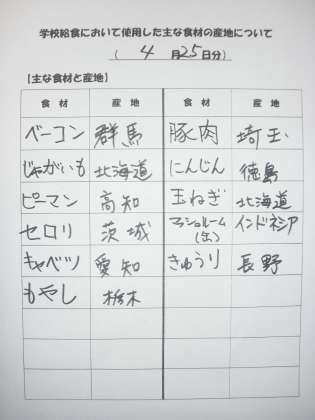 学校給食において使用した主な食材の産地について
( 4 月25日分)
【主な食材と産地】
食 材 産 地 食 材 産 地
ベーコン 群馬 豚肉 埼玉
じゃがいも 北海道 にんじん 徳島
ピーマン 高知 玉ねぎ 北海道
セロリ 茨城 マッシュルーム(缶) インドネシア
キャベツ 愛知 きゅうり 長野
もやし 栃木